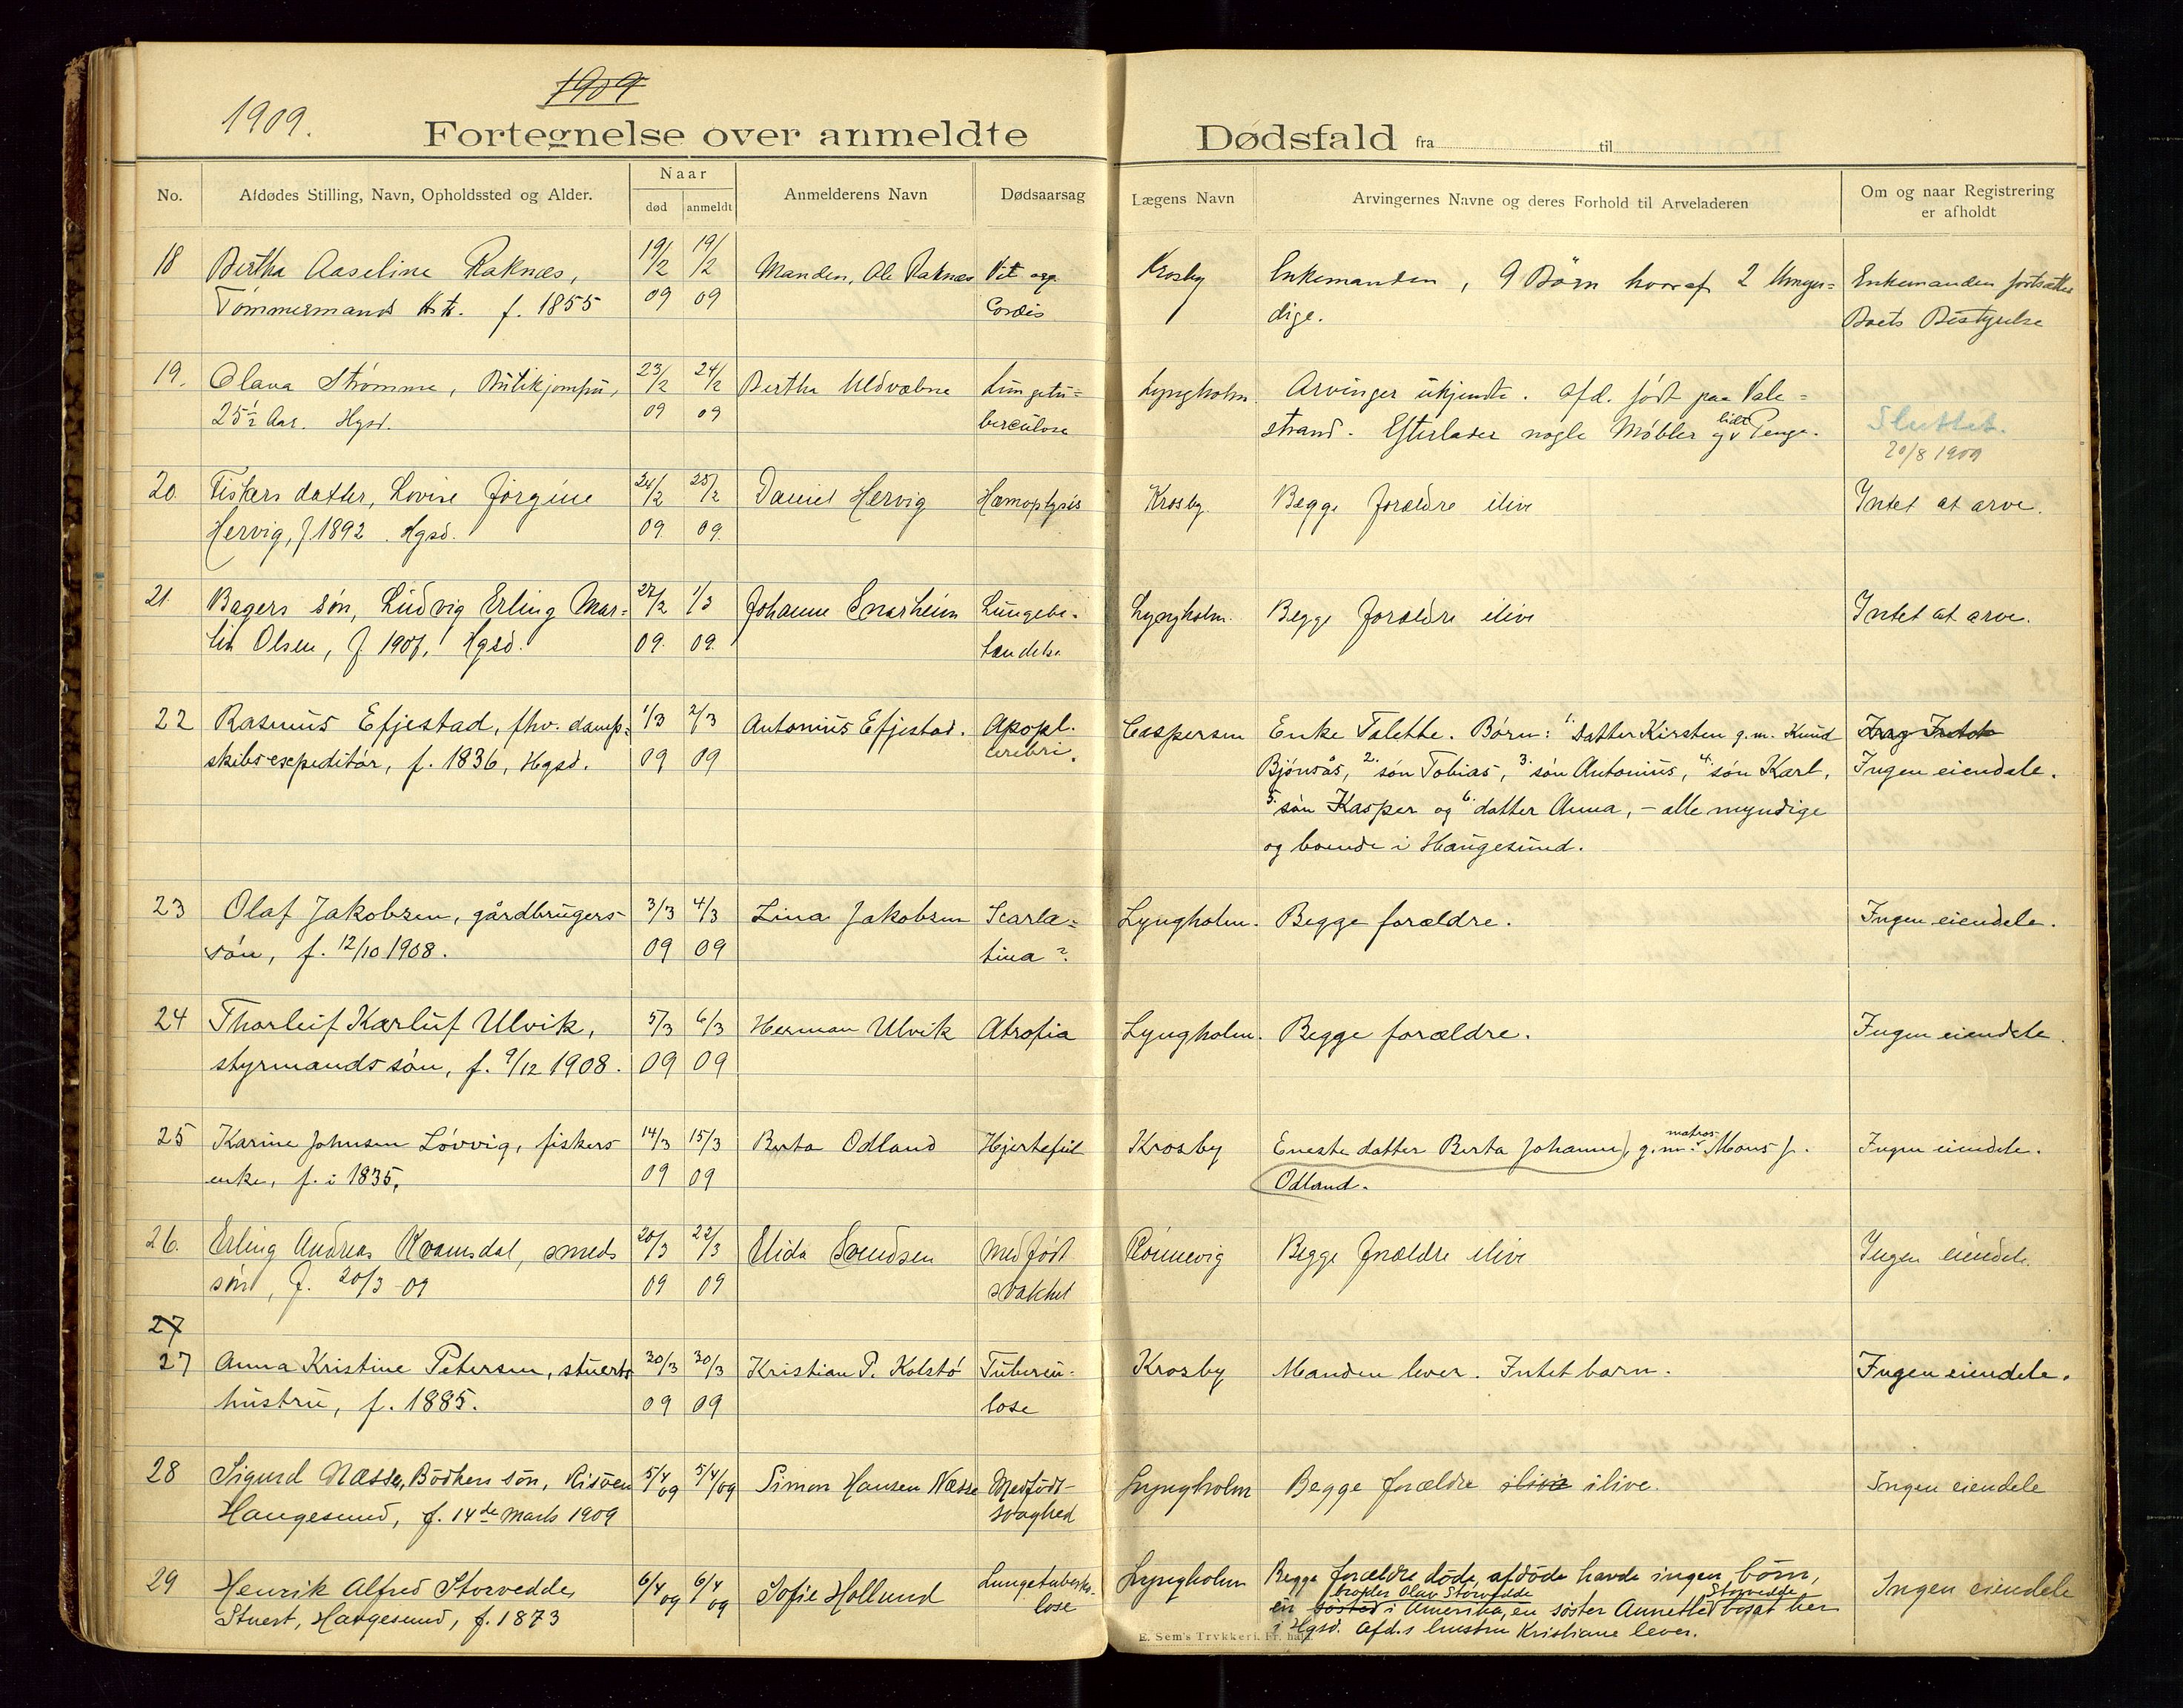 1909
1909.
Fortegnelse over anmeldte Dødsfald fra til
No. Afdødes Stilling, Navn, Opholdssted og Alder. Naar død anmeldt Anmelderens Navn Dødsaarsag Lægens Navn Arvingernes Navne og deres Forhold til Arveladeren Om og naar Registrering er afholdt
18 Bertha Aaseline Raknæs, 19/2 19/2 Manden, Ole Raknæs Vit. org. Krosby Enkemanden, 9 Børn hvoraf 2 Umyn= Enkemanden fortsætter
Tømmermands f. 1855 09 09 Cordis dige. Boets Bestyrelse
19. Olava Strømme, Butikjomfru, 23/2 24/2 Bertha Uldvabne Lungetu= Lyngholm. Arvinger ukjendte. Afd. født paa Vale=
25½ Aar. Hgsd. 09 09 berculose strand. Efterlader nogle Møbler og lidt Penge. Sluttet.
20/8 1909
20. Fiskers datter, Lovise Jørgine 24/2 25/2 Daniel Hervig Hæmoptysis Krosby. Begge forældre ilive Intet at arve.
Hervig, f 1892. Hgsd. 09. 09.
21. Bagers søn, Ludvig Erling Mar= 27/2 1/3 Johanne Snarheim Lungebe- Lyngholm. Begge forældre ilive Intet at arve.
tin Olsen, f 1907, Hgsd. 09. 09. tændelse
22 Rasmus Efjestad, fhv. damp- 1/3 2/3 Antonius Efjestad. Apopl. Caspersen Enke Talette. Børn: 1. Datter Kirsten g.m. Knud
skibsexpeditør, f. 1836, Hgsd. 09 09 cerebri. Bjønsås, 2. søn Tobias, 3. søn Antonius, 4. søn Karl, Ingen eiendele.
5. søn Kasper og 6. datter Anna, - alle myndige
og boende i Haugesund.
23 Olaf Jakobsen, gårdbrugers- 3/3 4/3 Lina Jakobsen Scarla= Lyngholm. Begge forældre. Ingen eiendele.
søn, f. 12/10 1908. 09 09 tina?
24 Thorleif Karluf Ulvik, 5/3 6/3 Herman Ulvik Atrofia Lyngholm. Begge forældre. Ingen eiendele.
styrmands søn, f. 9/12 1908. 09 09
25 Karine Johnsen Løvvig, fiskers 14/3 15/3 Berta Odland Hjertefeil Krosby Eneste datter Berta Johanne, g.m. matros Mons J. Ingen eiendele.
enke, f. i 1835, 09 09 Odland.
26. Erling Andreas Kvamsdal, smeds 20/3 22/3 Elida Svendsen Medfødt Rönnevig Begge forældre ilive Ingen eiendele.
søn, f. 20/3 09 09 09 svakhet
27
27 Anna Kristine Petersen, stuerts 30/3 30/3 Kristian P. Kolstø Tubercu- Krosby Manden lever. Intet barn. Ingen eiendele.
hustru, f. 1885. 09 09 lose
28 Sigurd Næsse, Bødkers søn, Risøen 5/4 09 5/4 09 Simon Hansen Næsse Medfødt- Lyngholm Begge forældre ilive ilive. Ingen eiendele
Haugesund, f. 14de Marts 1909 svaghed
29 Henrik Alfred Storvedde, 6/4 09 6/4 09 Sofie Hollund Lungetuberku- Lyngholm Begge forældre døde, afdøde havde ingen børn, Ingen eiendele
Stuert, Haugesund, f. 1873 lose en søsted broder Olav Storvedde i Amerika, en søster Annette Storvedde bosat her
i Hgsd. Afd.s hustru Kristiane lever.
E. Sem's Trykkeri. Fr. hald.